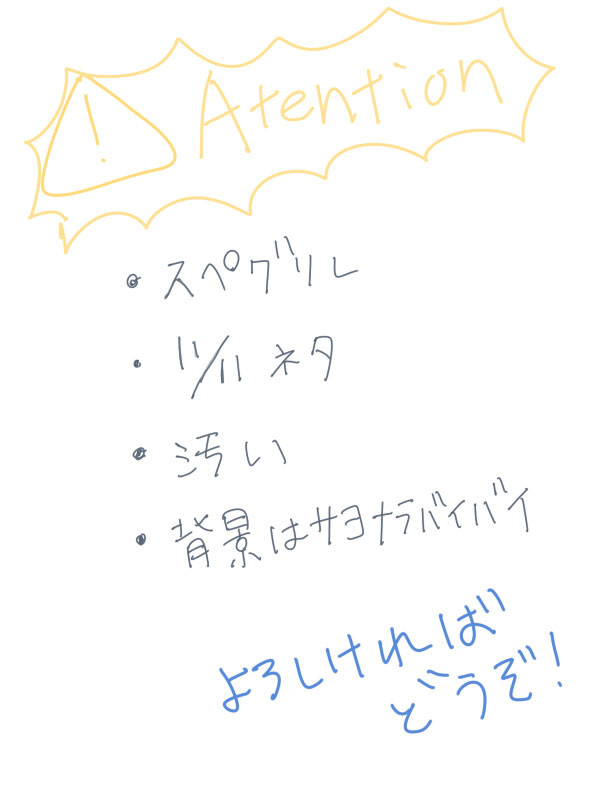 ! Atention
・スペグリル
・11/11 ネタ
・汚い
・背景はサヨナラバイバイ
よろしければ
どうぞ!